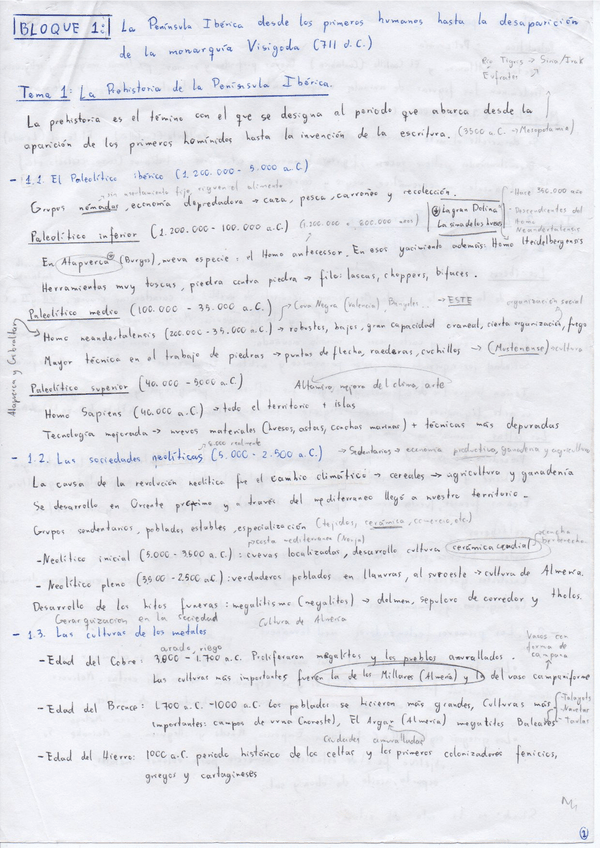 BLOQUE 1: La Península Ibérica desde los primeros humanos hasta la desaparición
de la monarquía Visigoda (711 d.C.)
Rio Tigris → Siria/Irak
Eufrates
Tema 1: La Prehistoria de la Península Ibérica.
La prehistoria es el término con el que se designa al periodo que abarca desde la
aparición de los primeros homínidos hasta la invención de la escritura. (3500 a.C. → Mesopotamia)
- 1.1. El Paleolítico ibérico (1.200.000 - 5.000 a.C.)
sin asentamiento fijo, siguen el alimento
Grupos nómadas, economía depredadora → caza, pesca, carroñeo y recolección.
"Gran Dolina"
La sima de los huesos
- Hace 350.000 años
- Descendientes del Homo Neandertalensis
Paleolítico inferior (1.200.000 - 100.000 a.C.) (1.200.000 - 800.000 años)
En Atapuerca (Burgos), nueva especie: el Homo antecessor. En esos yacimiento además: Homo Heidelbergensis
Herramientas muy toscas, piedra contra piedra → filo: lascas, choppers, bifaces.
Paleolítico medio (100.000 - 35.000 a.C.) Cova Negra (Valencia), → ESTE
organización social
Homo neandertalensis (200.000 - 35.000 a.C.) → robustos, bajos, gran capacidad craneal, cierta organización, fuego
Atapuerca y Gibraltar
Mayor técnica en el trabajo de piedras → puntas de flecha, raederas, cuchillos → (Musteriense) cultura
Paleolítico superior (40.000 - 5000 a.C.) Altamira, mejora del clima, arte
Homo Sapiens (40.000 a.C.) → todo el territorio + islas
Tecnología mejorada → nuevos materiales (huesos, astas, conchas marinas) + técnicas más depuradas
- 1.2. Las sociedades neolíticas (5.000 - 2.500 a.C.) → Sedentarios → economía productiva, ganadería y agricultura
La causa de la revolución neolítica fue el cambio climático → cereales → agricultura y ganadería
Se desarrollo en Oriente próximo y a través del mediterraneo llegó a nuestro territorio.
Grupos sendentarios, poblados estables, especialización (tejidos, cerámica, comercio, etc)
- Neolítico inicial (5.000 - 3500 a.C.): cuevas localizadas, desarrollo cultura cerámica cardial
costa mediterranea
concha
- Neolítico pleno (3500 - 2500 a.C.): verdaderos poblados en llanuras, al suroeste → cultura de Almería.
Desarrollo de los hitos funeras: megalitismo (megalitos) → dolmen, sepulcro de corredor y tholos.
Gerarquización en la sociedad
Cultura de Almería
- 1.3. Las culturas de los metales
arado, riego
- Edad del Cobre: 3.000 - 1.700 a.C. Proliferaron megalitos y los pueblos amurallados.
Las culturas más importantes fueron la de los Millares (Almería) y la del vaso campaniforme
Vasos con forma de campana
- Edad del Bronce: 1.700 a.C. - 1000 a.C. Los poblados se hicieron más grandes, Culturas más
importantes: campos de urnas (noreste), El Argar (Almería) megalitos Baleares
- Talayots
- Navetas
- Taulas
Ciudades amuralladas
- Edad del Hierro: 1000 a.C. periodo histórico de los celtas y los primeros colonizadores fenicios,
griegos y cartagineses
1